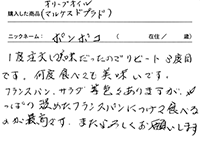 購入した商品(オリーブオイル
マルケスドプラド)
ニックネーム: ポンポコ (在住/ 歳)
1度注文し美味だったのでリピート3度目
です。何度食べても美味いです。
フランスパン、サラダ等色々ありますが、や
っぱり硬めなフランスパンにつけて食べる
のが最高です。またよろしくお願いします